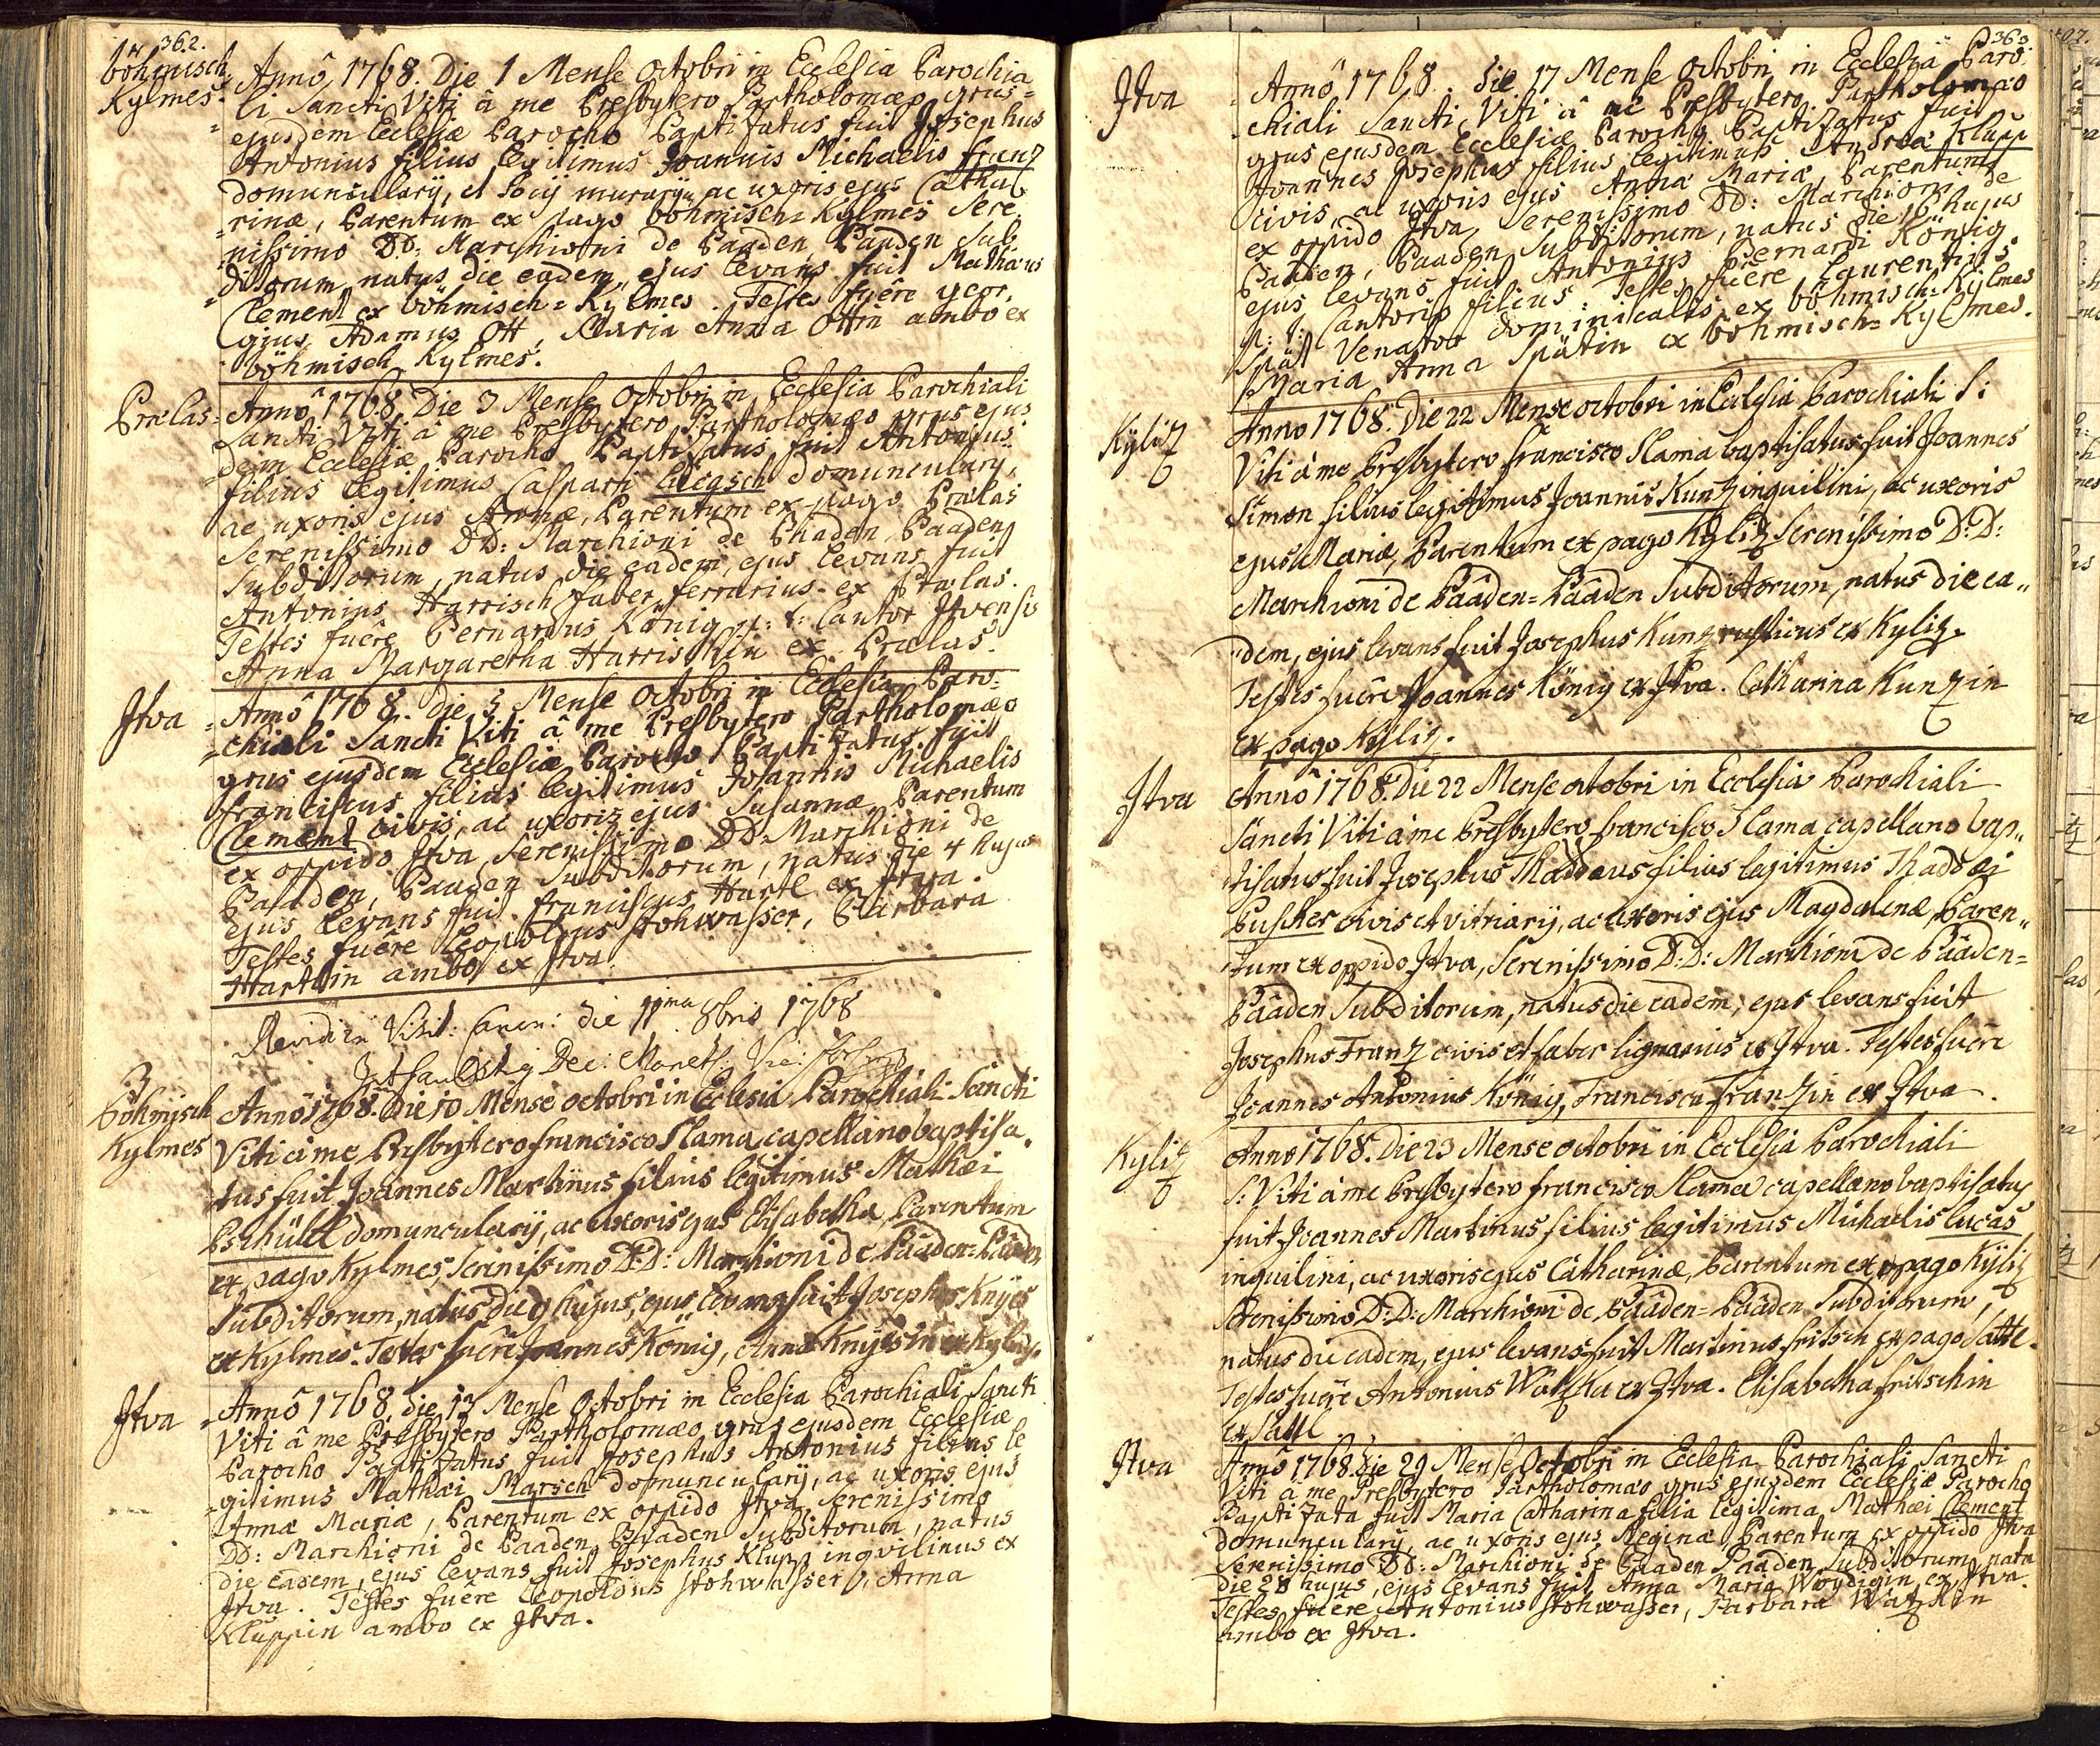 362.
böhmisch
Kylmes.
Annô 1768. Die 1 Mense Octobri in Ecclesia Parochia
li Sancti Viti â me Presbytero Partholomæo grus=
ejusdem Ecclesiæ Parocho Paptizatus fuit Josephus
Antonius filius legitimus Joannis Michaelis franz
domuncularÿ, et Socij murarÿ ac uxoris ejus Catha
=rinæ, Parentum ex pago böhmisch=Kylmes Sere
nissimo DD: Marchioni de Baaden Baaden Sub
=ditorum natus die eadem, ejus levans fuit Mathæus
Clement ex böhmisch=Kÿlmes. Testes fuêre geor,
gius Adamus Ott, Maria Anna Ottin ambo ex
böhmisch Kylmes.
Prælas=
Annô 1768. Die 3 Mense Octobri in Ecclesia Parochiali
Sancti Viti â me Presbytero Partholomæo grus ejus
=dem Ecclesiæ Parocho Paptizatus fuit Antonius
filius legitimus Casparij domuncularÿ,
ac uxoris ejus Annæ, Parentum ex pago Prælas
Serenissimo DD: Marchioni de Baaden Baaden
Subditorum, natus die eadem, ejus levans fuit
Antonius Harrisch faber ferrarius ex Prælas.
Testes fuêre Bernardus König p: t: Cantor Jtvensis
Anna Margaretha Harrischin ex Prælas.
Jtva
=Annô 1768. Die 5 Mense Octobri in Ecclesia Paro=
=chiali Sancti Viti â me Presbytero Partholomæo
grus ejusdem Ecclesiæ Parocho Paptizatus fuit
franciscus filius legitimus Joannis Michaelis
Clement civis, ac uxoris ejus Susannæ, Parentum
ex oppido Jtva Serenissimo DD: Marchioni de
Baaden, Baaden Subditorum, natus die 4 hujus
ejus levans fuit franciscus Hartl ex Jtva.
Testes fuêre Leopoldus Stohwasser, Barbara
Hartlin ambo ex Jtva.
Revidi in Visit: Canon: die 11ma 8bris 1768
Dec:
böhmisch
Kylmes
Annô 1768. Die 10 Mense octobri in Eclesia Parochiali Sancti
Viti â me Presbytero francisco Slama capellano baptisa
tus fuit Joannes Martinus filius legitimus Mathæi
Pschüll domuncularÿ, ac uxoris ejus Elisabetha, Parentum
ex pago Kylmes, Serenissimo D:D: Marchioni de Bâaden=Bâaden
Subditorum, natus die 9 hujus, ejus levans fuit Josephus Knÿes
ex Kylmes. Testes fuêre Joannes König, Anna Knÿesin ex Kylmes.
Jtva
=Annô 1768. die 13 Mense Octobri in Ecclesia Parochiali Sancti
Viti â me Presbytero Partholomæo grus ejusdem Ecclesiæ
Parocho Paptizatus fuit Josephus Antonius filius le
=gitimus Mathæi Marsch domuncularÿ, ac uxoris ejus
Annæ Mariæ, Parentum ex oppido Jtva, Serenissimo
DD: Marchioni de Baaden Baaden Subditorum, natus
die eadem, ejus levans fuit Josephus Klupp inqvilinus ex
Jtva. Testes fuêre Leopoldus Stohwasser, Anna
Kluppin ambo ex Jtva.
363
Jtva
Annô 1768. Die 17 Mense Octobri in Ecclesia Paro=
chiali Sancti Viti â me Presbytero Partholomæo
grus ejusdem Ecclesiæ Parocho Paptizatus fuit
Joannes Josephus filius legitimus Andreæ Klupp
civis, ac uxoris ejus Annæ Mariæ, Parentum
ex oppido Jtva, Serenissimo DD: Marchioni de
Baaden, Baaden Subditorum, natus die 16 hujus
ejus levans fuit Antonius Bernardi König
p: t: Cantoris filius: Testes fuêre Laurentius
Spät Venator dominicalis ex böhmisch=Kylmes
Maria Anna Spätin ex böhmisch=Kylmes.
Kyliz
Anno 1768. Die 22 Mense octobri in Eclesia Parochiali S:
Viti â me Presbytero francisco Slama baptisatus fuit Joannes
Simon filius legitimus Joannis Kunz inquilini, ac uxoris
ejus Mariæ, Parentum ex pago Kyliz Serenissimo D:D:
Marchioni de Bâaden=Bâaden Subditorum, natus die ea„
„dem, ejus levans fuit Josephus Kunz rusticus ex Kyliz.
Testes fuêre Joannes König ex Jtva. Catharina Kunzin
ex pago Kyliz.
Jtva
Annô 1768. Die 22 Mense octobri in Ecclesia Parochiali
Sancti Viti â me Presbytero francisco Slama capellano bap„
tisatus fuit Josephus Thaddeus filius legitimus Thaddæi
Puscher civis et vitriarÿ, ac uxoris ejus Magdalenæ, Paren„
tum ex oppido Jtva, Serenissimo D:D: Marchioni de Bâaden=
Bâaden Subditorum, natus die eadem, ejus levans fuit
Josephus Franz civis et faber lignarius ex Jtva. Testes fuêre
Joannes Antonius König, Francisca Franzin ex Jtva.
Kyliz
Anno 1768. Die 23 Mense octobri in Ecclesia Parochiali
S: Viti â me Presbytero francisco Slama capellano baptisatus
fuit Joannes Martinus filius legitimus Michaelis Lucas
inquilini, ac uxoris ejus Catharinæ, Parentum ex pago Kÿliz
Serenissimo D:D: Marchioni de Bâaden=Bâaden Subditorum,
natus die eadem, ejus levans fuit Martinus fritsch ex pago Sattl.
Testes fuêre Antonius Watzka ex Jtva. Elisabetha fritschin
ex Sattl
Jtva
Annô 1768. Die 29 Mense Octobri in Ecclesia Parochiali Sancti
Viti â me Presbytero Partholomæo grus ejusdem Ecclesiæ Parocho
Paptizata fuit Maria Catharina filia legitima Mathæi Clement
domuncularÿ, ac uxoris ejus Reginæ, Parentum ex oppido Jtva
Serenissimo DD: Marchioni de Baaden Baaden Subditorum, nata
die 28 hujus, ejus levans fuit Anna Maria Woydigin ex Jtva.
Testes fuêre Antonius Stohwasser, Barbara Watzkin
ambo ex Jtva.